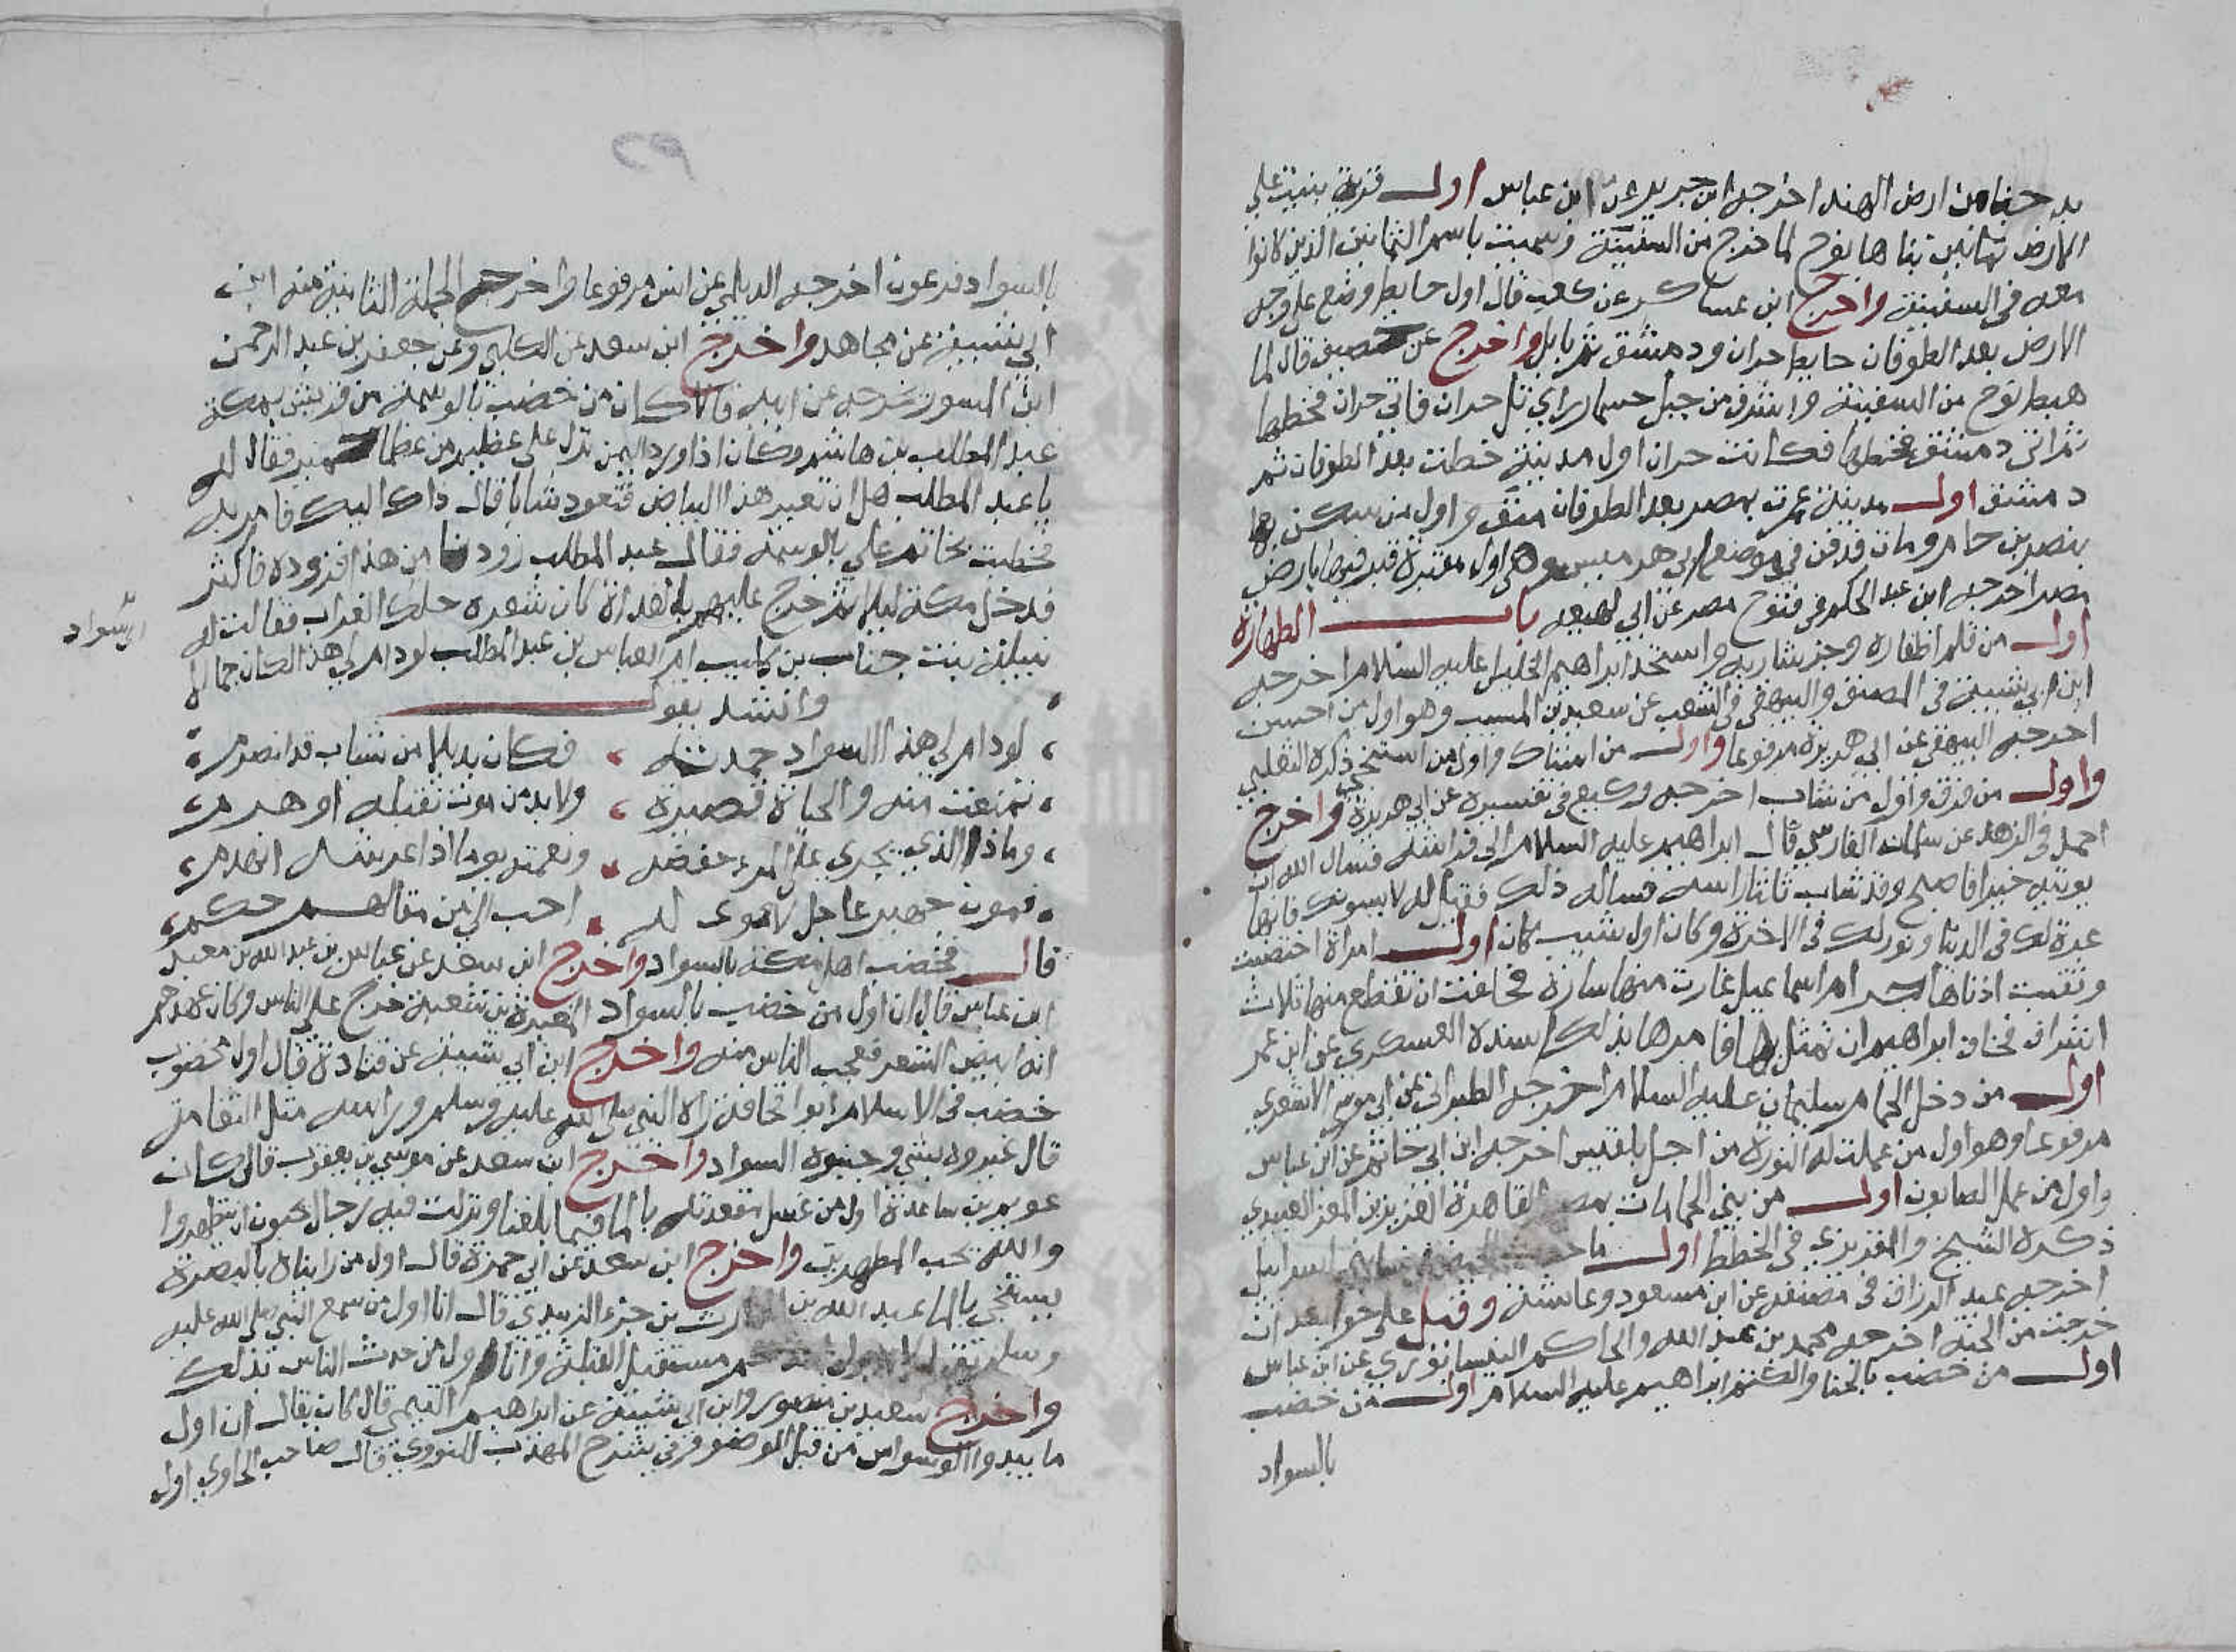 بدحنا من ارض الهند اخرجه ابن جرير عن ابن عباس اول قرية بنيت علي
الارض ثمانين بناها نوح لما خرج من السفينة وسميت باسم الثمانين الذين كانوا
معه في السفينة واخرج ابن عساكر عن كعب قال اول حايط وضع على وجه
الارض بعد الطوفان حايط حران ودمشق ثم بابل واخرج عن خصيف قال لما
هبط نوح من السفينة واشرف من جبل حسما راي تل حران فاتي حران فخطها
ثم اتى دمشق فخطها فكانت حران اول مدينة خطت بعد الطوفان ثم
دمشق اول مدينة عمرت بمصر بعد الطوفان منف واول من سكن بها
بنصر بن حام ومات فدفن في موضع ابي هرميس وهي اول مقبرة قبر فيها بارض
مصر اخرجه ابن عبد الحكم في فتوح مصر عن ابي لهيعه باب الطهارة
اول من قلم اظفاره وجز شاربه واستحد ابراهيم الخليل عليه السلام اخرجه
ابن ابي شيبة في المصنف والبيهقي في الشعب عن سعيد بن المسيب وهو اول من اختتن
اخرجه البيهقي عن ابي هريرة مرفوعا واول من استاك واول من استنجى ذكره الثعلبي
واول من فرق واول من شاب اخرجه وكيع في تفسيره عن ابي هريرة واخرج
احمد في الزهد عن سلمان الفارسي قال ابراهيم عليه السلام الى فراشه فسال الله ان
يوتيه خيرا فاصبح وقد شاب ثلثا راسه فساله ذلك فقيل له لا يسونك فانها
عبرة لك في الدنيا ونور لك في الاخرة وكان اول شيب كان اول امراة اختضبت
وثقبت اذناها هاجر ام اسماعيل غارت منها سارة فحافت ان تقطع منها ثلاث
اشراف فخاف ابراهيم ان تمثل بها فامرها بذلك اسنده العسكري عن ابن عمر
اول من دخل الحمام سليمان عليه السلام اخرجه الطبراني عن ابي موسي الاشعري
مرفوعا وهو اول من عملت له النورة من اجل بلقيس اخرجه ابن ابي حاتم عن ابن عباس
واول من عمل الصابون اول من بنى الحمامات بمصر القاهرة العزيز بن المعز العبيدي
ذكره الشيخ والمقريزي في الخطط اول ما اسرايل
اخرجه عبد الرزاق في مصنفه عن ابن مسعود وعائشة وقيل علي حوا بعد ان
خرجت من الجنة اخرجه محمد بن عبد الله والحاكم النيسابوري عن ابن عباس
اول من خضب بالحنا والكتم ابراهيم عليه السلام اول من خضب
بالسواد
بالسواد فرعون اخرجه الديلمي عن انس مرفوعا واخرج الجملة الثانية منه ابن
ابي شيبة عن مجاهد واخرج ابن سعد عن الكلبي وعن جعفر بن عبد الرحمن
ابن المسور بن مخرمه عن ابيه قالا كان من خضب بالوسمة من قريش بمكة
عبد المطلب بن هاشم وكان اذا ورد اليمن نزل على عظيم من عظما حمير فقال له
يا عبد المطلب هل ان تغير هذا البياض فتعود شابا قال ذاك اليك فامر به
فخضب بحنا ثم علي بالوسمة فقال عبد المطلب زودنا من هذا فزوده فاكثر
فدخل مكة ليلا ثم خرج عليهم بالغداة كان شعره حلك الغراب فقالت له
نبيلة بنت جناب بن كليب ام العباس بن عبد المطلب لو دام لي هذا لكان جمالا
السواد
وانشد يقول
لو دام لي هذا السواد حمدته فكان بديلا من شباب قد انصرم
تمتعت منه والحياة قصيرة ولا بد من موت نقيله او هرم
وماذا الذي يجري على المرء حفضه ونعمته يوما اذا عرشه انهدم
فموت جهيز عاجل لا شوى له احب الي من مقالهم حكم
قال فخضب اهل مكة بالسواد واخرج ابن سعد عن عباس بن عبد الله بن معبد
ابن عباس قال ان اول من خضب بالسواد المغيرة بن شعبة خرج على الناس وكان عهدهم
انه ابيض الشعر فعجب الناس منه واخرج ابن ابي شيبة عن قتادة قال اول مخضوب
خضب في الاسلام ابوا قحافة راه النبي صلي الله عليه وسلم وراسه مثل الثغامة
قال غيروه بشي وجنبوه السواد واخرج ابن سعد عن موسي بن يعقوب قال كان
عويم بن ساعدة اول من غسل مقعدته بالما فيما بلغنا ونزلت فيه رجال يحبون ان يتطهروا
والله يحب المطهرين واخرج ابن سعد عن ابي حمزة قال اول من رايناه بالبصرة
يستنجي بالما عبد الله بن الحارث بن جزء الزبيدي قال انا اول من سمع النبي صلى الله عليه
وسلم يقول لا يبولن احدكم مستقبل القبلة وانا اول من حدث الناس بذلك
واخرج سعيد بن منصور وابن ابي شيبة عن ابراهيم التيمي قال كان يقال ان اول
ما يبدوا الوسواس من قبل الوضوء وفي شرح المهذب للنووي قال صاحب الحاوي اول